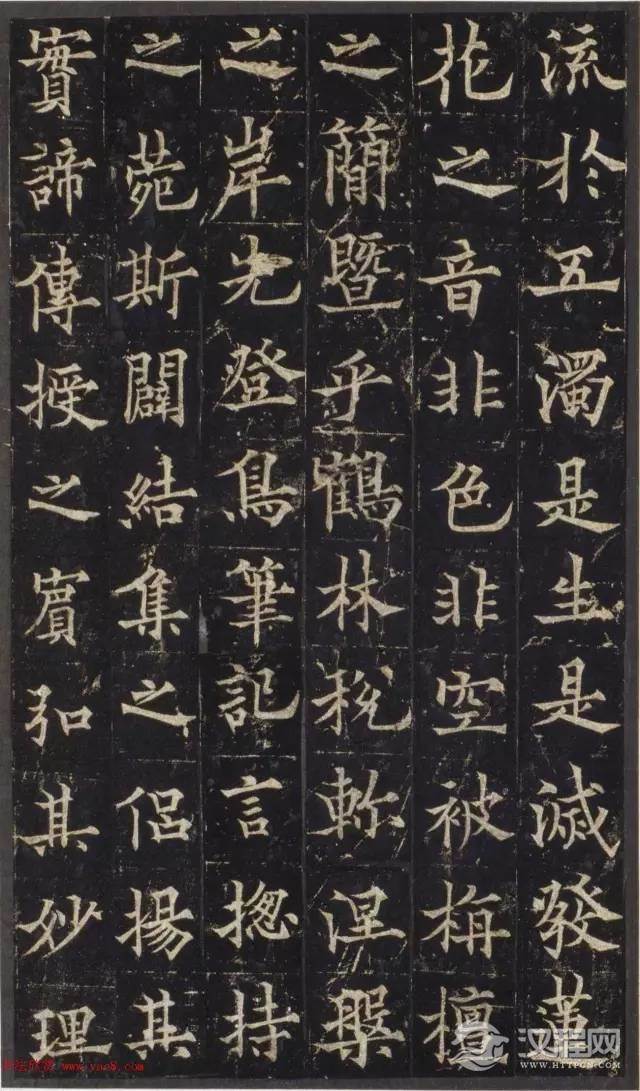 流於五濁是生是滅發蓮
花之音非色非空被栴檀
之簡暨乎鶴林稅軫涅槃
之岸先登鳥筆記言揔持
之菀斯闢結集之侶揚其
實諦傳授之賓弘其妙理
汉程网
HTTPCN.COM
书法欣赏 www.yac8.com